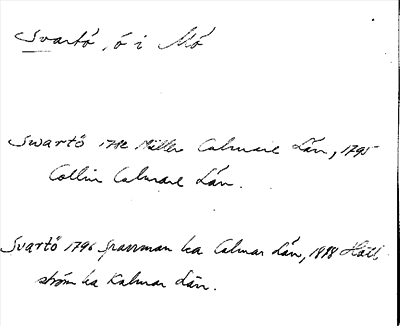 Svartö, ö i Mö
Swartö 1792 Müller Calmare Län, 1795
Collin Calmare Län.
Svartö 1796 Sparrman ka Calmar Län, 1898 Häll
ström ka Kalmar Län.